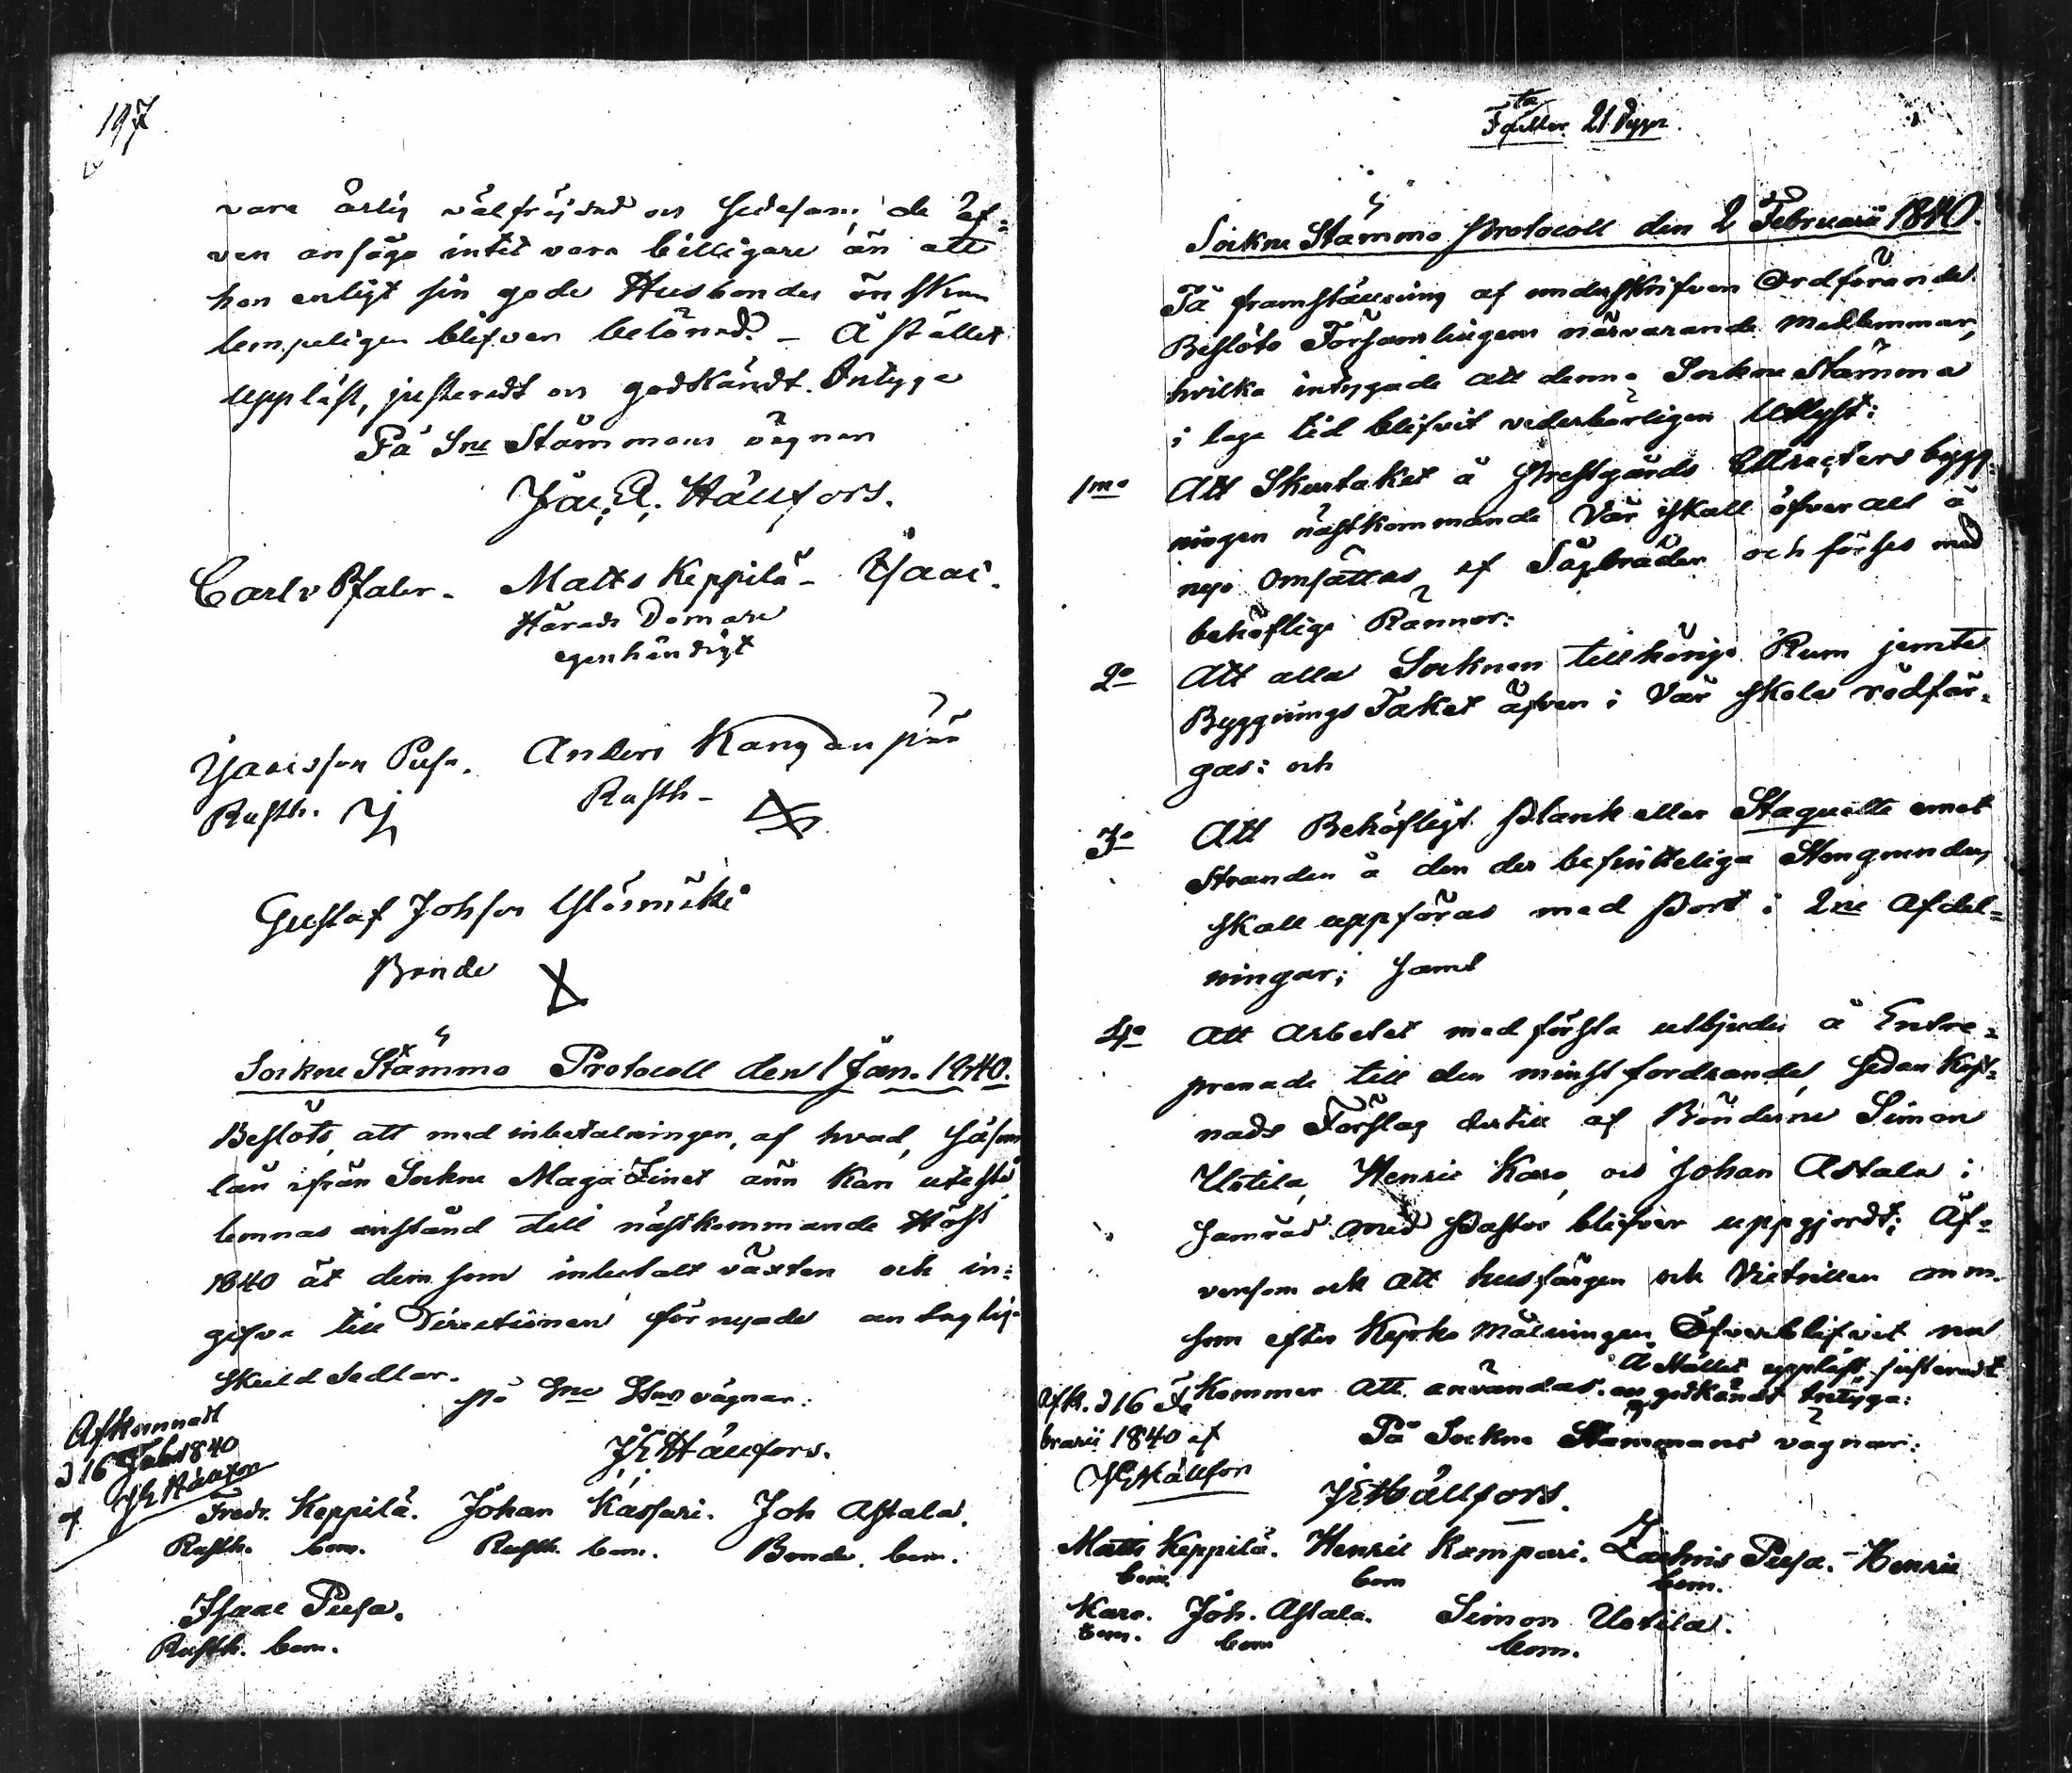 197
vara ärlig välfrejdad och hedesam, de äf-
ven ansågo intet vara billigare än att
han enligt sin gode Husbondes önskan
lempeligen blifver belönad. – À stället
uppläst, justeradt och godkändt. Intyga
På Sne Stämmans vägnar
Jac. E. Hällfors.
Carl v Pfaler. Matts Keppilä – Isaac.
Härads Domare
egenhändigt
Isacsson Pusa. Anders Kangan pää
Rusth. Rusth –
Gustaf Johsson
Bonde
Sockne Stämmo Protocoll den 1 Jan. 1840.
Beslöts, att med inbetalningen, af hvad, såsom
lån ifrån Sockne Magazinet änn kan utestå
lemnas anstånd till nästkommande Höst
1840 åt dem som inbetalt växten och in-
gifva till Directionen förnyade antaglige
Skuld Sedlar.
På Sne Stns vägnar:
JE Hällfors.
Afkunnadt
d 16 Feb. 1840
af JE Hällfors
Fredr. Keppilä. Johan Kassari. Joh Astala.
Rusth. bom. Rusth. bom. Bonde. bom.
Isaac Pusa.
Rusth. bom.
21 Dygn.
Sockne Stämmo Protocoll den 2 Februarii 1840.
På framställning af underskrifven Ordförande
Beslöto Församlingens närvarande Medlemmar,
hvilka intygade att denna Sockne Stämma
i laga tid blifvit vederbörligen Utlyst:
1mo Att Skurtaket å Prestgårds Caracters bygg-
ningen nästkommande Vår skall öfver allt å
nyo Omsättas af Sågbräder och förses med
behöflige Rännor:
2o Att alla Socknen tillhörige Rum jemte
Byggnings Taket äfven i Vår skola rödfär-
gas: och
3o Att Behöfligt Plank eller Staquette emot
Stranden å den der befinteliga Stengrunden
skall uppföras med Port i 2ne Afdel-
ningar; samt
4o Att Arbetet med första utbjudes å Entre-
prenade till den minst fordrande, sedan Kost-
nads Förslag dertill af Bönderne Simon
Uotila, Henric Karo, och Johan Astala i
Samråd med Pastor blifver uppgjordt; Äf-
vensom ock att husfärgen och Victrillen m. m.
som efter Kyrko Målningen Öfverblifvit nu
Kommer att användas. À Stället uppläst justeradt
och godkändt Intyga:
Afk. d 16 Fe
bruarii 1840 af
JE Hällfors
På Sockne Stämmans vägnar:
JE Hällfors.
Matts Keppilä. Henric Rampari. Zachris Pusa. – Henric
bom. bom bom.
Karo. Joh. Astala. Simon Uotila.
bom. bom bom.